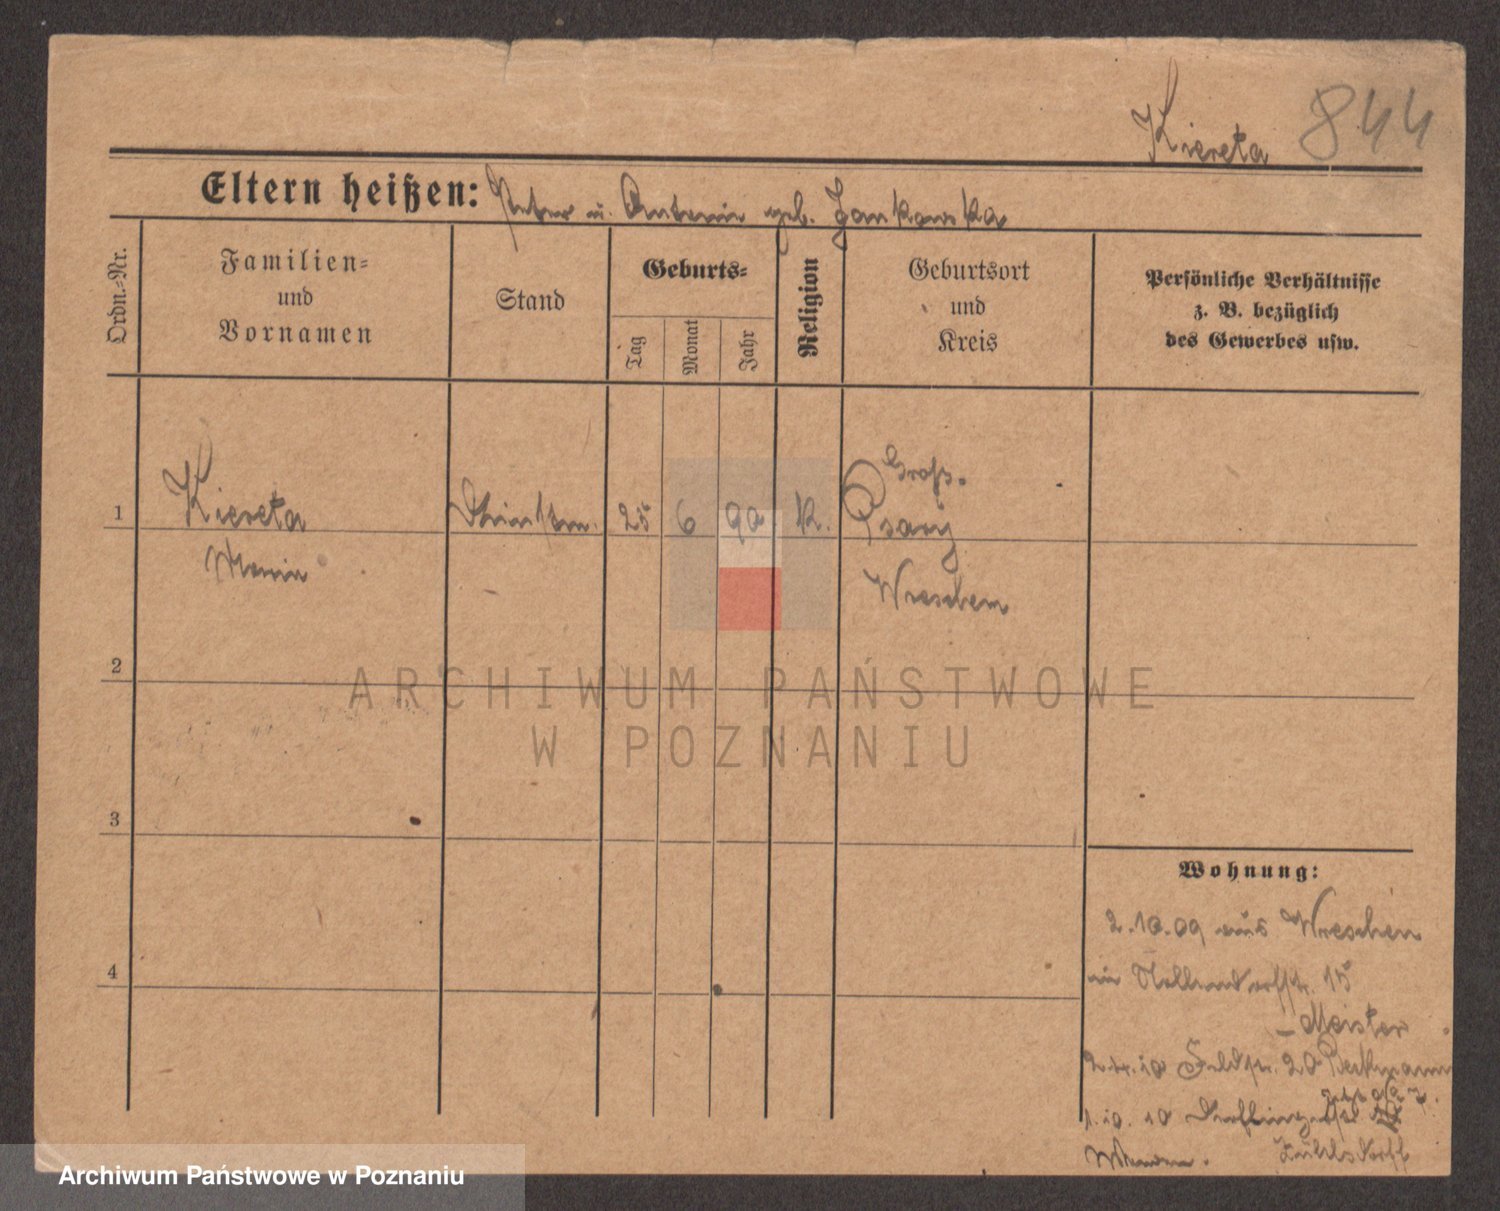 Kiereta 844
Eltern heißen: Peter u. Antonie geb. Jankowska
Ordn.-Nr.
Familien-
und
Vornamen
Stand
Geburts-
Tag
Monat
Jahr
Religion
Geburtsort
und
Kreis
Persönliche Verhältnisse
z. B. bezüglich
des Gewerbes usw.
Groß.
1 Kiereta 25 6 90 K. Psary
Maria Wreschen
2
ARCHIWUM PAŃSTWOWE
W POZNANIU
3
Wohnung:
2.10.09 aus Wreschen
in Nollendorfstr. 15
– Meister
4
2.4.10 Feldstr. 20 Beckmann
1.10.10 Derflingerstr.
Zühlsdorff
Archiwum Państwowe w Poznaniu